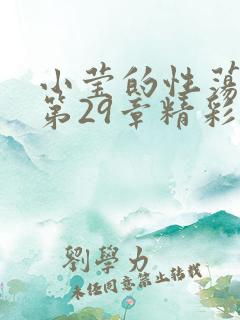 小莹的性荡
第29章精彩
劉學力
未经同意禁止转载